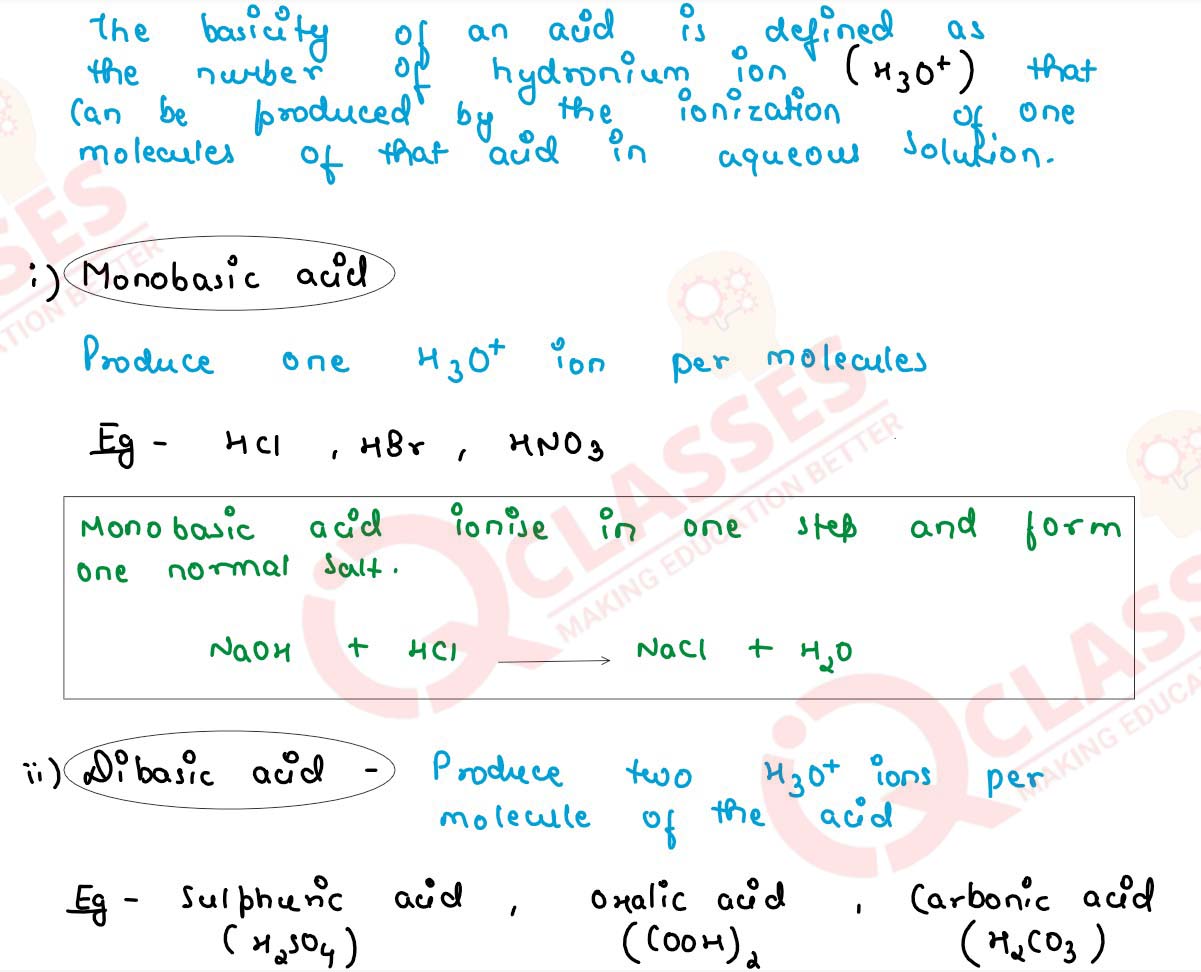 The basicity of an acid is defined as
the nurber of hydronium ion (H₃O⁺) that
Can be produced by the ionization of one
molecules of that acid in aqueous Solution.
i) Monobasic acid
Produce one H₃O⁺ ion per molecules
Eg - HCl , HBr , HNO₃
Monobasic acid ionise in one step and form
one normal Salt.
NaOH + HCl ⟶ NaCl + H₂O
ii) Dibasic acid - Produce two H₃O⁺ ions per
molecule of the acid
Eg - Sulphuric acid , Oxalic acid , Carbonic acid
(H₂SO₄) (COOH)₂ (H₂CO₃)
SES
TION BETTER
QCLASSES
MAKING EDUCATION BETTER
QCLASS
MAKING EDUCA